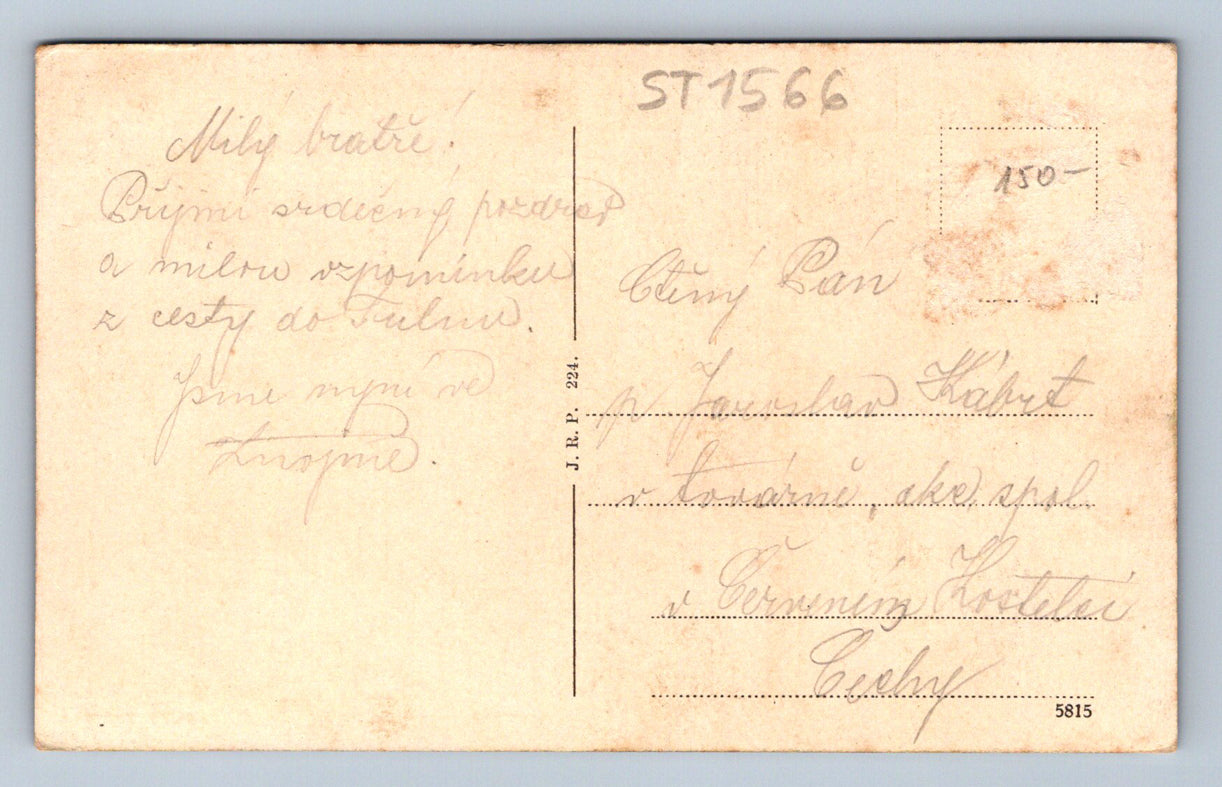 ST1566
150-
Milý bratře!
Přijmi srdečný pozdrav
a milou vzpomínku
z cesty do Tulnu.
Jsme nyní ve
Znojmě.
J. R. P. 224.
Ctěný Pán
p Jaroslav Kábrt
v továrně, akc. spol.
v Červeném Kostelci
Čechy
5815